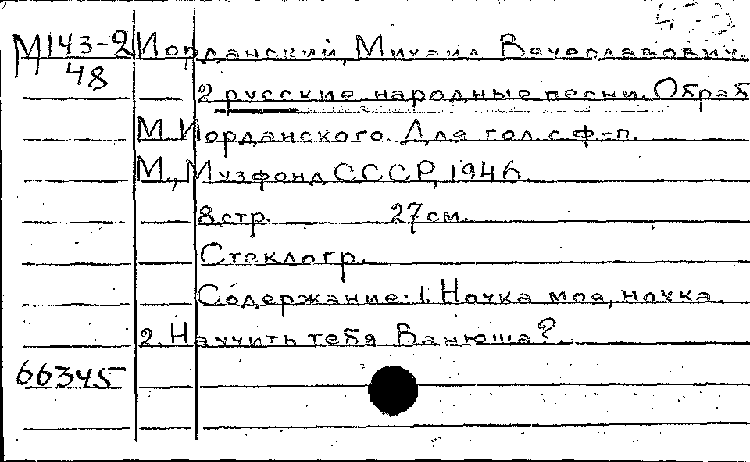 М143-2 Иорданский, Михаил Вячеславович.
48
2 русские народные песни. Обраб
М. Иорданского. Для гол. с ф-п.
М., Музфонд СССР, 1946
8 стр. 27 см.
Стеклогр.
Содержание: 1. Ночка моя, ночка.
2. Научить тебя Ванюша?
66345